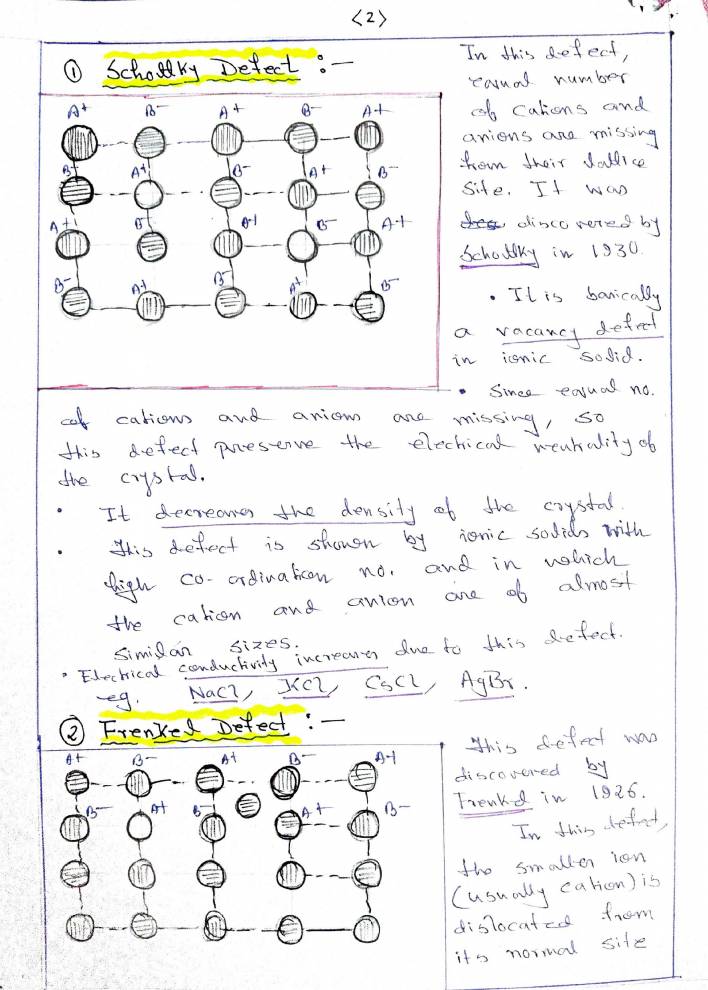 <2>
① Schottky Defect :-
A+ B- A+ B- A+
B- A+ B- A+ B-
A+ B- A+ B- A+
B- A+ B- A+ B-
In this defect,
equal number
of cations and
anions are missing
from their lattice
site. It was
discovered by
Schottky in 1930.
• It is basically
a vacancy defect
in ionic solid.
• Since equal no.
of cations and anions are missing, so
this defect preserve the electrical neutrality of
the crystal.
• It decreases the density of the crystal.
• This defect is shown by ionic solids with
high co-ordination no. and in which
the cation and anion are of almost
similar sizes.
• Electrical conductivity increases due to this defect.
eg. NaCl, KCl, CsCl, AgBr.
② Frenkel Defect :-
A+ B- A+ B- A+
B- A+ B- A+ B-
This defect was
discovered by
Frenkel in 1926.
In this defect,
the smaller ion
(usually cation) is
dislocated from
its normal site